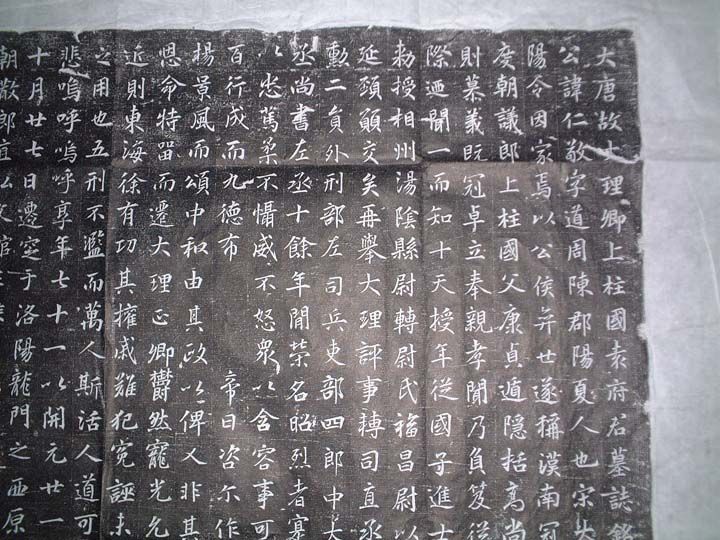 大唐故大理卿上柱國袁府君墓誌銘
公諱仁敬字道周陳郡陽夏人也宋太
陽令因家焉以公侯弈世遂稱漢南冠
度朝議郎上柱國父康貞遁隱括高尚
則慕義既冠卓立奉親孝聞乃負笈從
際迺聞一而知十天授年從國子進士
勑授相州湯陰縣尉轉尉氏福昌尉以
延頸願交矣再舉大理評事轉司直丞
勳二員外刑部左司兵吏部四郎中大
丞尚書左丞十餘年閒榮名昭烈者寡
以忠篤柔不懾威不怒衆以含容事可
百行成而九德布 帝曰咨尒作
楊景風而頌中和由其政以俾乂非其
恩命特留而遷大理正卿欝然寵光允
近則東海徐有功其擁戚難犯冤誣未
之用也五刑不濫而萬人斯活人道可
悲嗚呼嗚呼享年七十一以開元廿一
十月廿七日遷窆于洛陽龍門之西原
朝散郎直弘文館